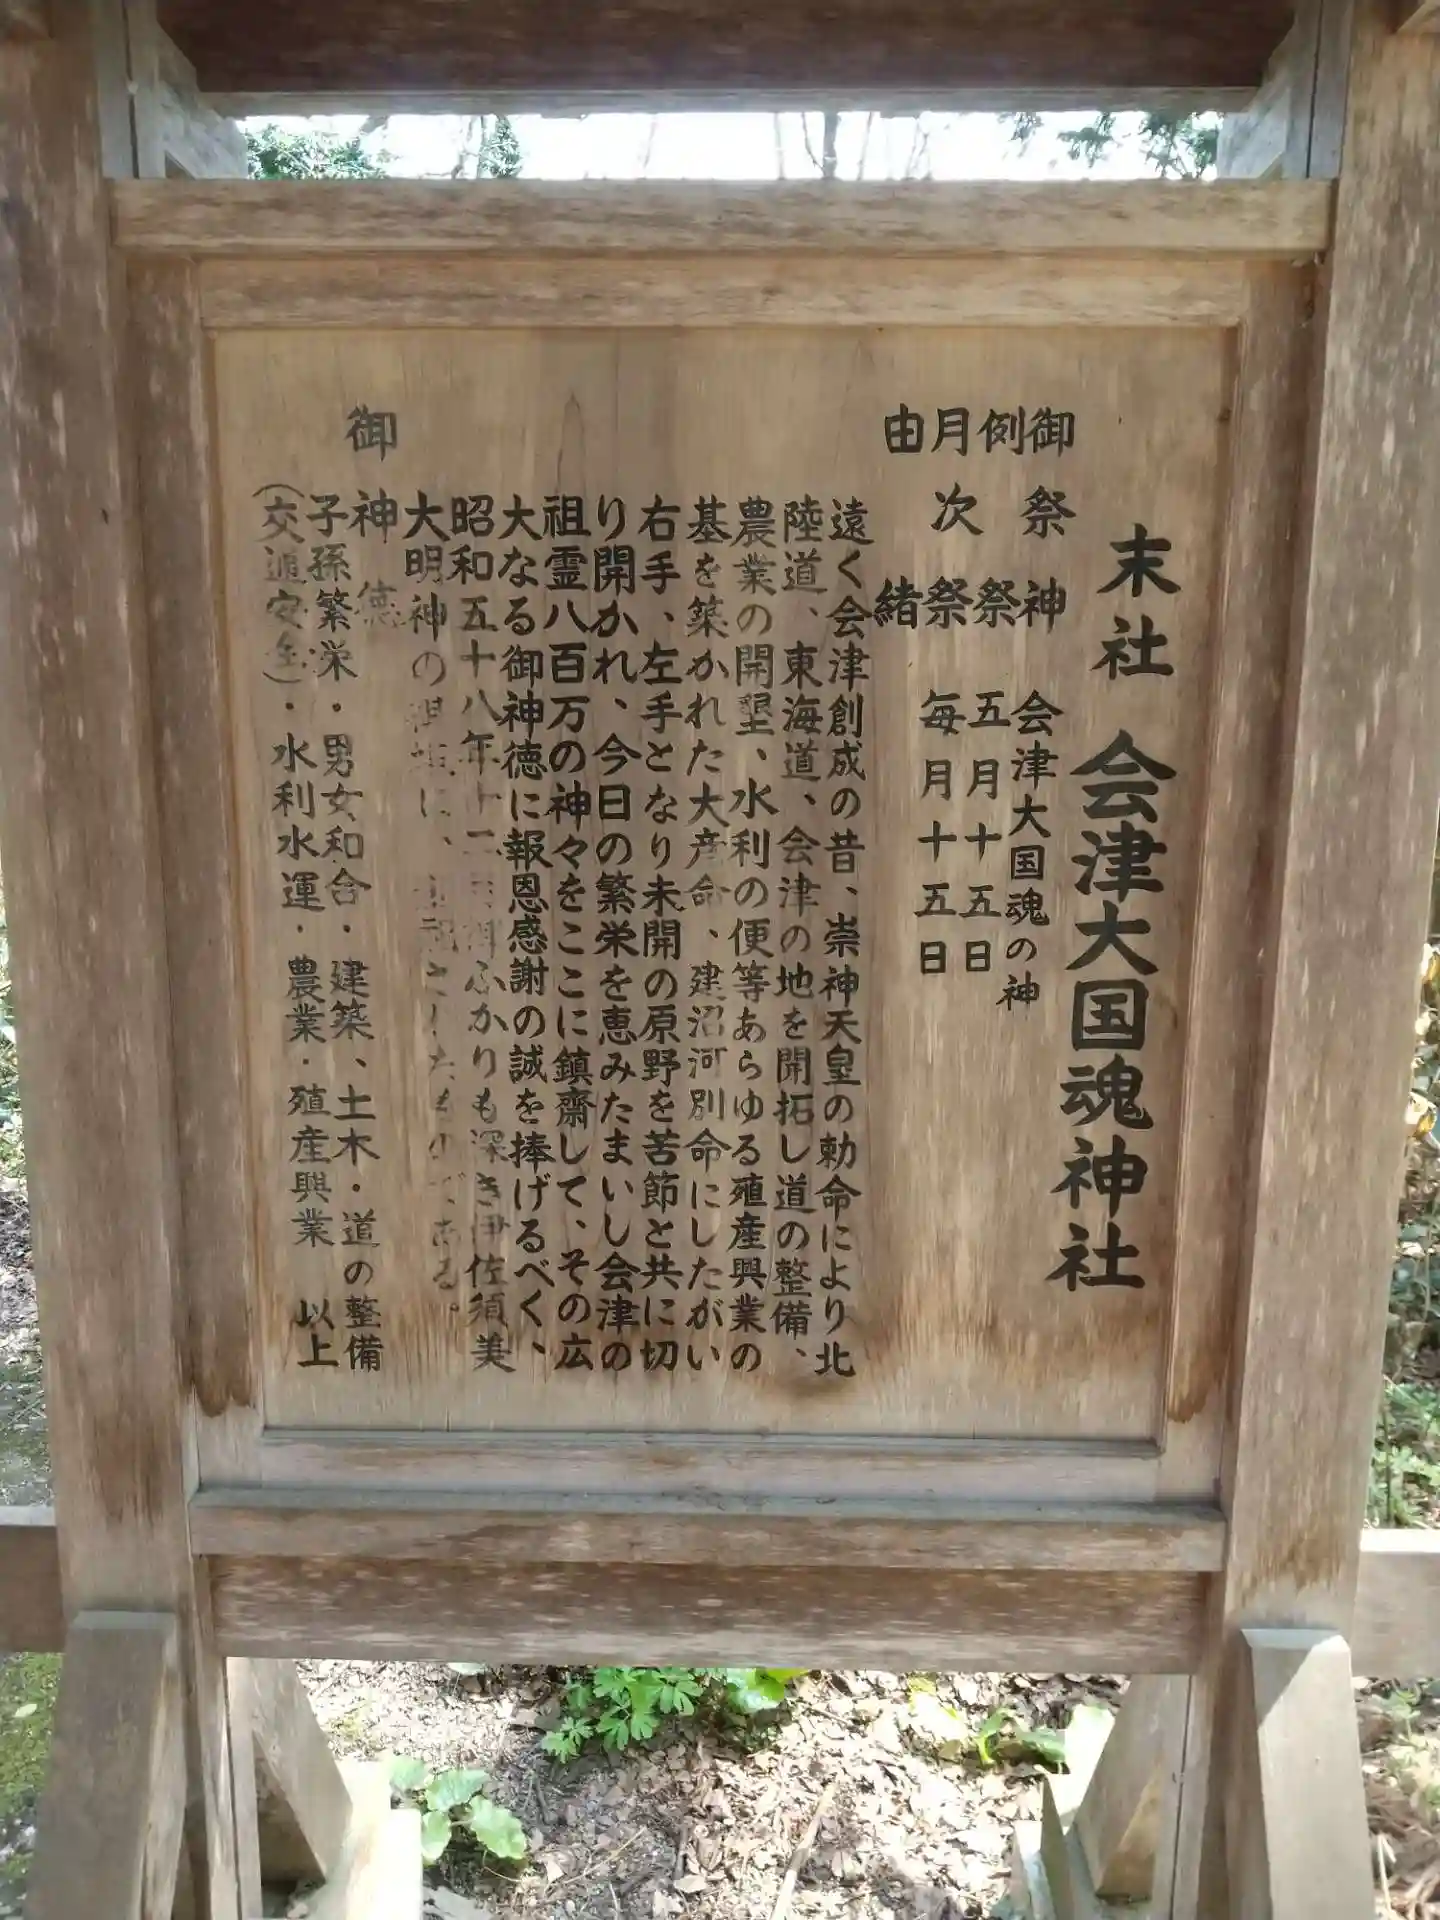 末社 会津大国魂神社
御祭神 会津大国魂の神
例祭 五月十五日
月次祭 毎月十五日
由緒
遠く会津創成の昔、崇神天皇の勅命により北
陸道、東海道、会津の地を開拓し道の整備、
農業の開墾、水利の便等あらゆる殖産興業の
基を築かれた大彦命、建沼河別命にしたがい
右手、左手となり未開の原野を苦節と共に切
り開かれ、今日の繁栄を恵みたまいし会津の
祖霊八百万の神々をここに鎮齋して、その広
大なる御神徳に報恩感謝の誠を捧げるべく、
昭和五十八年十二ふかりも深き伊佐須美
大明神のに、したものである。
御神徳
子孫繁栄・男女和合・建築、土木・道の整備
(交通安全)・水利水運・農業・殖産興業 以上